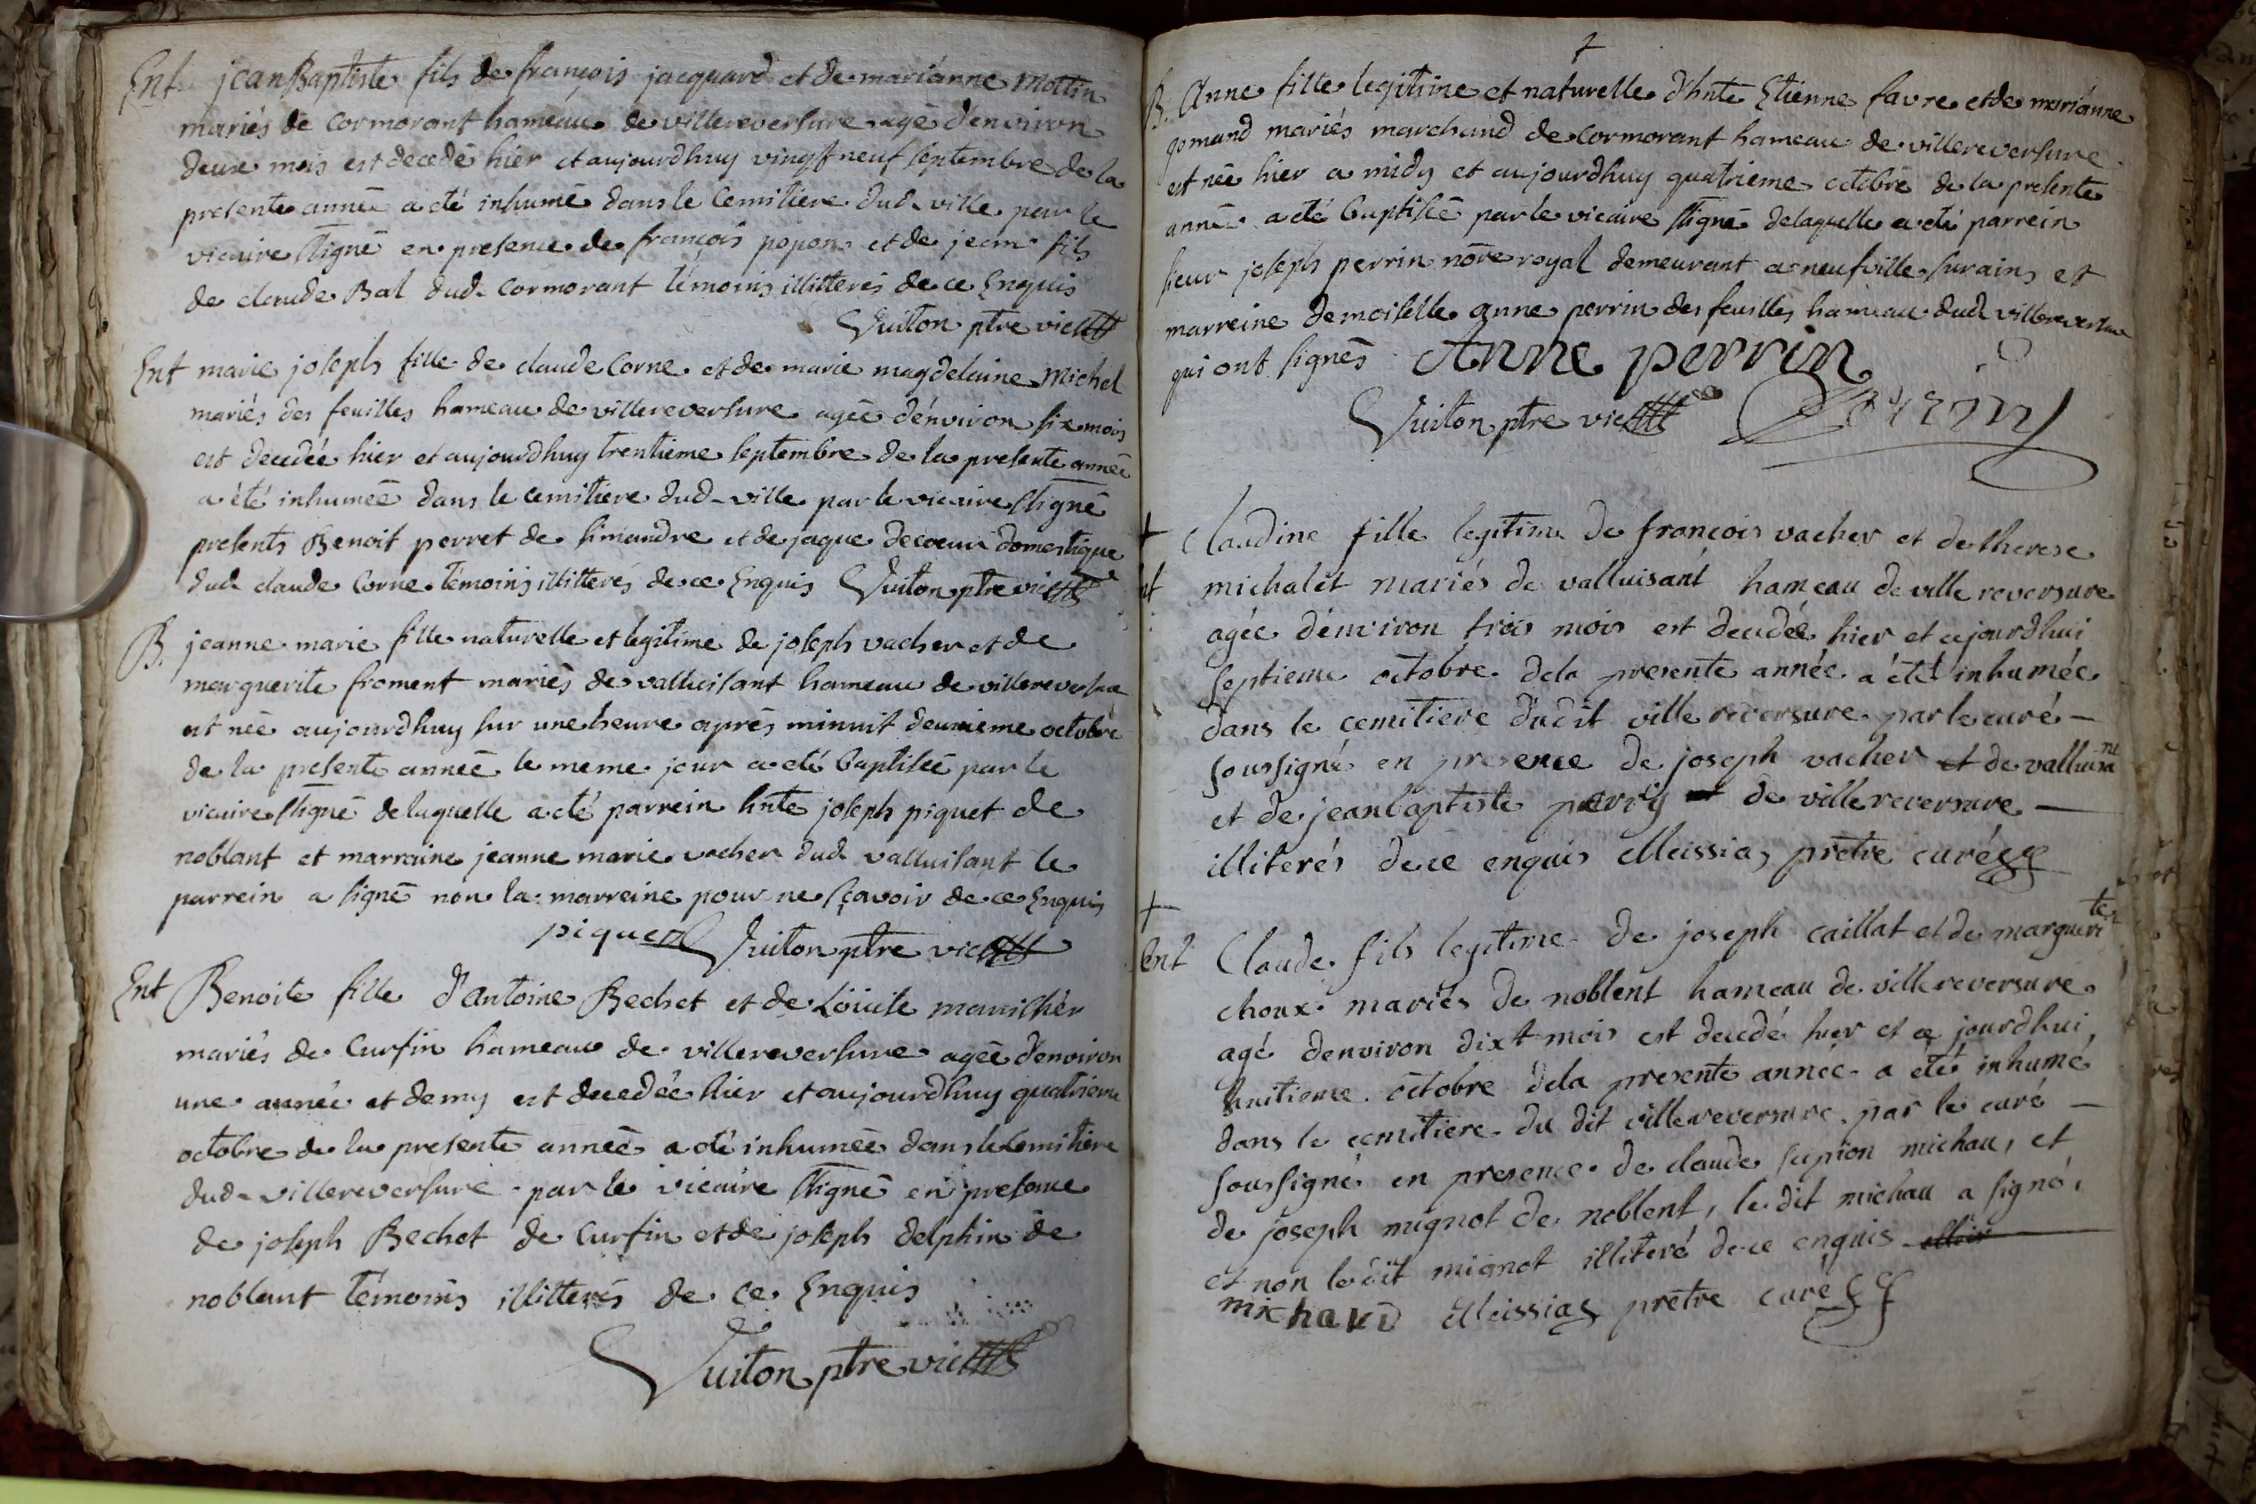 Ent jean Baptiste fils de françois jacquard et de marianne Mottin
mariés de cormorant hameau de villereversure agé d'environ
deux mois est decedé hier et aujourdhuy vingt neuf septembre de la
presente année a été inhumé dans le Cemitiere dud. ville par le
vicaire ssigné en presence de françois popon et de jean fils
de claude Bal dud. cormorant témoins illitterés de ce Enquis
Vuiton ptre vic
Ent marie joseph fille de claude Corne et de marie magdelaine Michel
mariés des feuilles hameau de villereversure agée d'environ six mois
est decedée hier et aujourdhuy trentieme septembre de la presente année
a été inhumée dans le cemitiere dud. ville par le vicaire ssigné
presents Benoit perret de simandre et de jaque decoeur domestique
dud. claude Corne témoins illitterés de ce Enquis Vuiton ptre vic
B. jeanne marie fille naturelle et legitime de joseph vacher et de
marguerite froment mariés de valluisant hameau de villereversure
est née aujourdhuy sur une heure après minuit deuxieme octobre
de la presente année le meme jour a eté baptisée par le
vicaire ssigné de laquelle a eté parrein hnte joseph piquet de
noblant et marraine jeanne marie vacher dud. valluisant le
parrein a signé non la marreine pour ne sçavoir de ce Enquis
piquet Vuiton ptre vic
Ent Benoite fille d'antoine Bechet et de Loüise
mariés de Curfin hameau de villereversure agée d'environ
une année et demy est decedée hier et aujourdhuy quatrieme
octobre de la presente année a été inhumée dans le Cemitiere
dud. villereversure par le vicaire ssigné en presence
de joseph Bechet de Curfin et de joseph delphin de
noblant témoins illitterés de ce Enquis
Vuiton ptre vic
B. Anne fille legitime et naturelle d'hnte Etienne favre et de marianne
gomand mariés marchand de Cormorant hameau de villereversure
est née hier a midy et aujourdhuy quatrieme octobre de la presente
année a eté baptisée par le vicaire ssigné de laquelle a eté parrein
sieur joseph perrin nōre royal demeurant a neufville surains et
marreine demoiselle anne perrin des feuilles hameau dud. villereversure
qui ont signés Anne perrin
Vuiton ptre vic Perrin
+ Claudine fille legitime de françois vacher et de therese
nt michalet mariés de valluisant hameau de ville reversure
agée d'environ trois mois est decedée hier et cejourdhui
septieme octobre dela presente année a été inhumée
dans le cemitiere dudit ville reversure par le curé -
soussigné en presence de joseph vacher et de valluisant
et de jean baptiste perrig de villereversure —
illiterés de ce enquis Meissias pretre curé
+
Ent Claude fils legitime de joseph caillat et de marguerite
choux mariés de noblent hameau de villereversure
agé d'environ dixt mois est decedé hier et ce jourdhui
huitieme octobre dela presente année a eté inhumé
dans le cemitiere du dit villereversure par le curé —
soussigné en presence de claude scipion michau, et
de joseph mignot de noblent, le dit michau a signé,
et non ledit mignot illiteré de ce enquis
michaud Meissias pretre curé